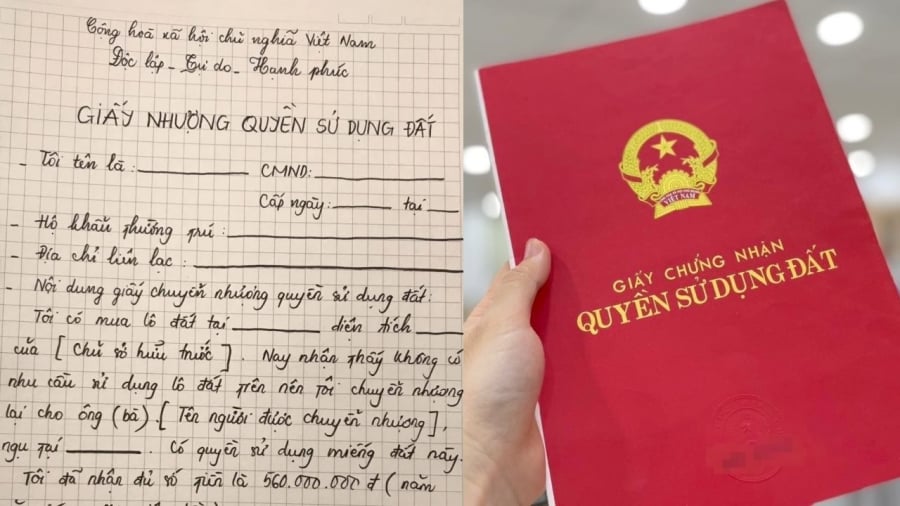 Cộng hoà xã hội chủ nghĩa Việt Nam
Độc lập - Tự do - Hạnh phúc
GIẤY NHƯỢNG QUYỀN SỬ DỤNG ĐẤT
- Tôi tên là: CMND:
Cấp ngày: tại
- Hộ khẩu thường trú:
- Địa chỉ liên lạc:
- Nội dung giấy chuyển nhượng quyền sử dụng đất:
Tôi có mua lô đất tại diện tích
của [Chủ sở hữu trước]. Nay nhận thấy không có
nhu cầu sử dụng lô đất trên nên tôi chuyển nhượng
lại cho ông (bà).[Tên người được chuyển nhượng],
ngụ tại . Có quyền sử dụng miếng đất này.
Tôi đã nhận đủ số tiền là 560.000.000 đ (năm
VIỆT NAM
GIẤY CHỨNG NHẬN
QUYỀN SỬ DỤNG ĐẤT